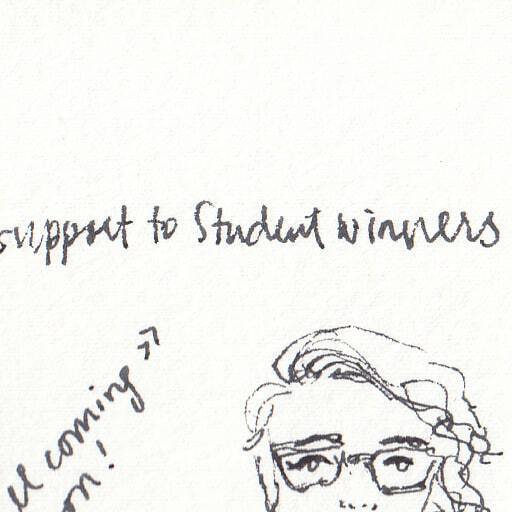 support to Student winners
coming